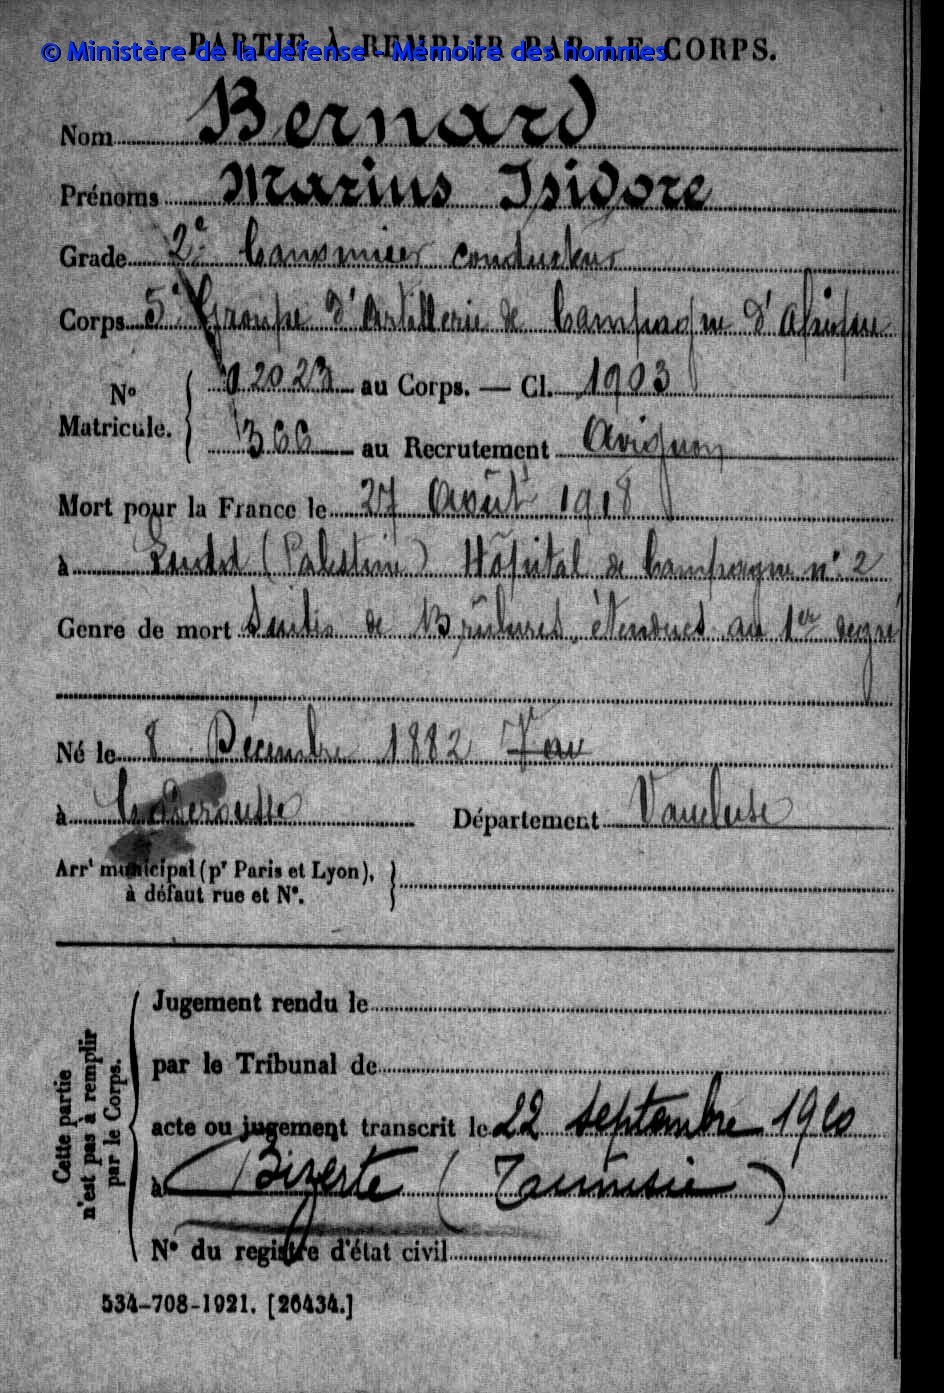 PARTIE À REMPLIR PAR LE CORPS.
© Ministère de la défense - Mémoire des hommes
Nom Bernard
Prénoms Marius Isidore
Grade 2e Canonnier conducteur
Corps 5e Groupe d'Artillerie de Campagne d'Afrique
No Matricule. { 12023 au Corps. — Cl. 1903
366 au Recrutement Avignon
Mort pour la France le 27 Août 1918
à Ludd (Palestine) Hôpital de Campagne n° 2
Genre de mort Suites de Brûlures étendues au 1er degré
Né le 8 Décembre 1882
à Caderousse Département Vaucluse
Arrt municipal (pr Paris et Lyon), à défaut rue et No. }
Cette partie n'est pas à remplir par le Corps. {
Jugement rendu le
par le Tribunal de
acte ou jugement transcrit le 22 septembre 1920
à Bizerte (Tunisie)
No du registre d'état civil
534-708-1921. [26434.]